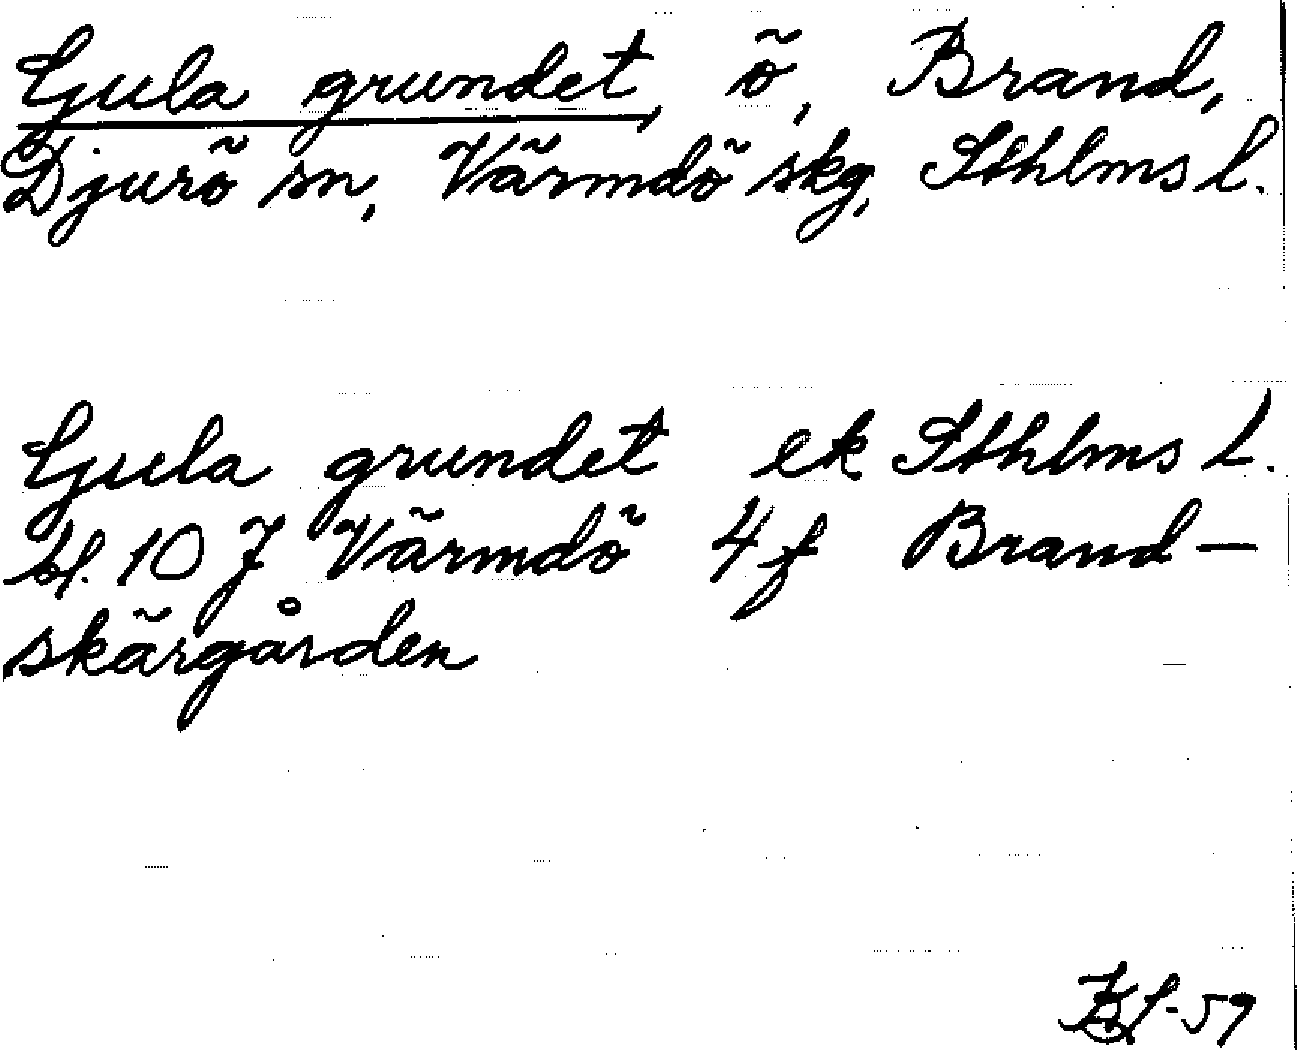 Gula grundet, ö, Brand,
Djurö sn, Värmdö skg, Sthlms l.
Gula grundet ek Sthlms L.
bl. 10 J Värmdö 4f Brand-
skärgården
-59